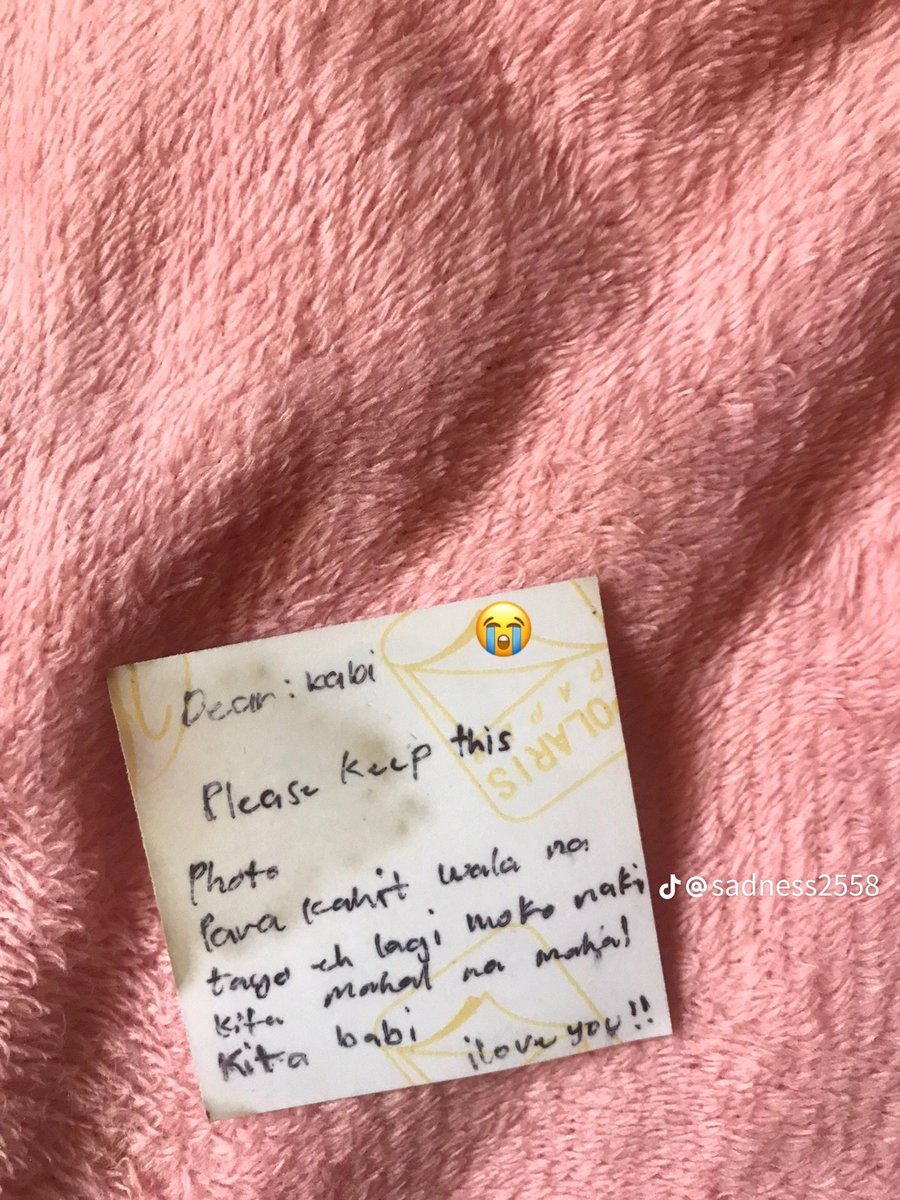 Dear: kabi
Please keep this
Photo
Para kahit wala na
tayo eh lagi moko naki
kita mahal na mahal
kita babi
i love you!!
POLARIS
PAP
@sadness2558